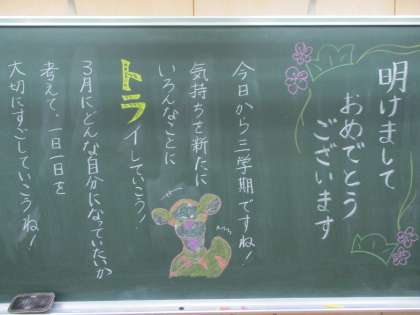 明けまして
おめでとう
ございます
今日から三学期ですね!
気持ちを新たに
いろんなことに
トライしていこう!
3月にどんな自分になっていたいか
考えて、一日一日を
大切にすごしていこうね!